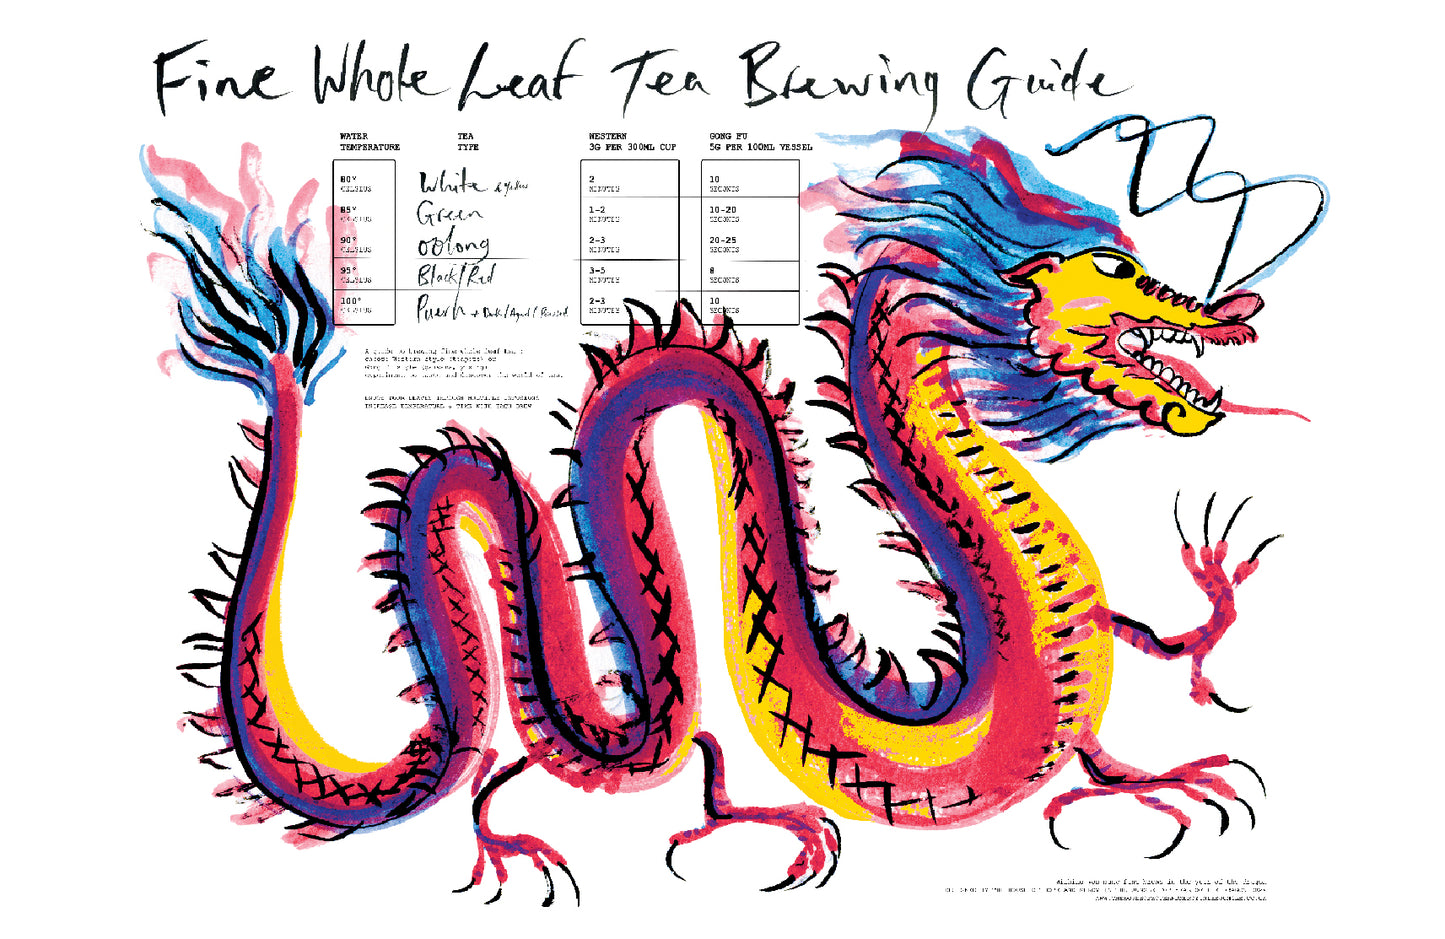 Fine Whole Leaf Tea Brewing Guide
WATER TEMPERATURE
TEA TYPE
WESTERN
3G PER 300ML CUP
GONG FU
5G PER 100ML VESSEL
80° CELSIUS White & Yellow 2 MINUTES 10 SECONDS
85° CELSIUS Green 1-2 MINUTES 10-20 SECONDS
90° CELSIUS oolong 2-3 MINUTES 20-25 SECONDS
95° CELSIUS Black/Red 3-5 MINUTES 8 SECONDS
100° CELSIUS Puerh + Dark/Aged/Pressed 2-3 MINUTES 10 SECONDS
A guide to brewing fine whole leaf tea
Western style
Gong
and discover the world of tea.
ENJOY YOUR LEAVES THROUGH MULTIPLE INFUSIONS
INCREASE TEMPERATURE + TIME WITH EACH BREW
Wishing you many fine brews in the year of the dragon.